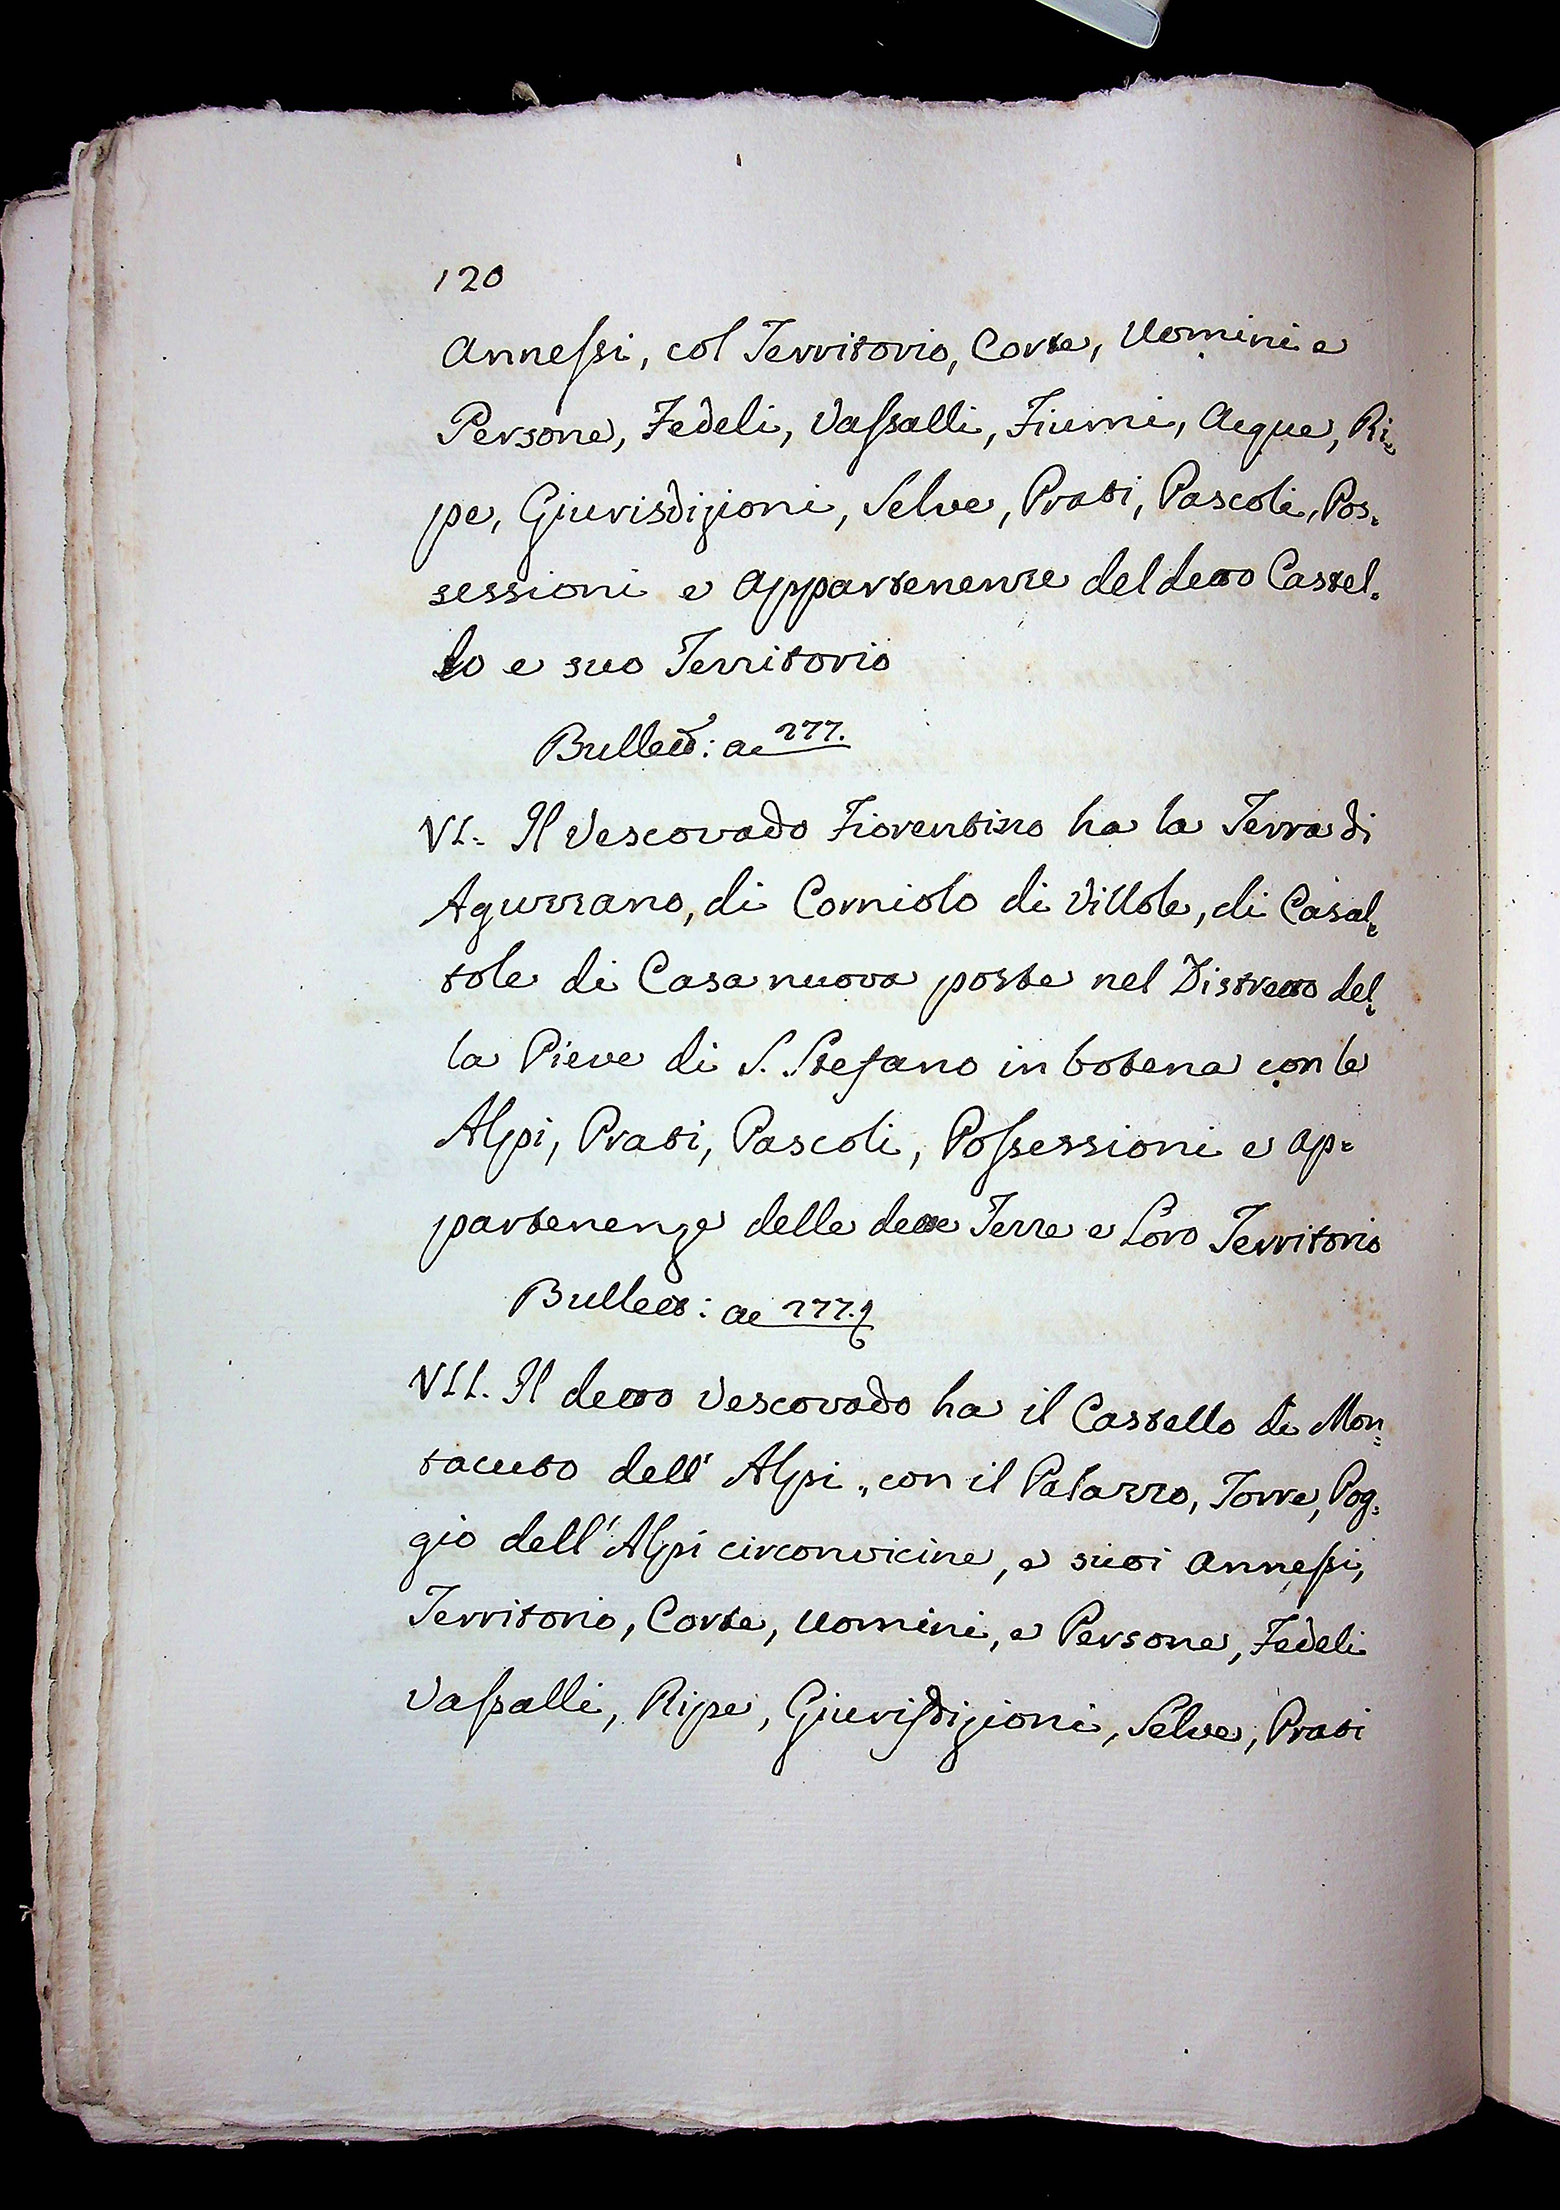 120
Annessi, col Territorio, Corte, Uomini e
Persone, Fedeli, Vassalli, Fiumi, Acque, Ri-
pe, Giurisdizioni, Selve, Prati, Pascoli, Pos-
sessioni e appartenenze del detto Castel-
lo e suo Territorio
Bullett: ac 277.
VI. Il Vescovado Fiorentino ha la Terra di
Aguzzano, di Corniolo di Villole, di Casal-
tole di Casanuova poste nel Distretto del-
la Pieve di S. Stefano in botena con le
Alpi, Prati, Pascoli, Possessioni e ap-
partenenze delle dette Terre e Loro Territorio
Bullett: ac 277.
VII. Il detto Vescovado ha il Castello di Mon-
tacuto dell' Alpi, con il Palazzo, Torre, Pog-
gio dell' Alpi circonvicine, e suoi annessi,
Territorio, Corte, Uomini, e Persone, Fedeli
Vassalli, Ripe, Giurisdizioni, Selve, Prati